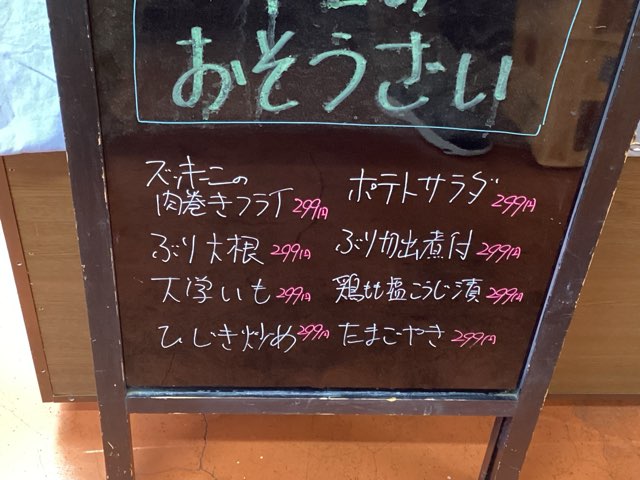 おそうさい
ズッキーニの
肉巻きフライ 299円
ポテトサラダ 299円
ぶり大根 299円
ぶり切出煮付 299円
大学いも 299円
鶏もも塩こうじ漬 299円
ひじき炒め 299円
たまごやき 299円